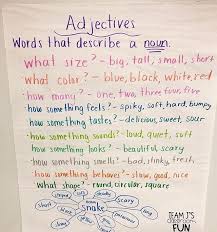 Adjectives
Words that describe a noun.
what size? - big, tall, small, short
what color? - blue, black, white, red
how many? - one, two, three, four, five
how something feels? - spiky, soft, hard, bumpy
how something tastes? - delicious, sweet, sour
how something sounds? - loud, quiet, soft
how something looks? - beautiful, scary
how something smells? - bad, stinky, fresh
how something behaves? - slow, good, nice
What shape? - round, circular, square
scary
snake
TEAM J'S
CLASSROOM
FUN